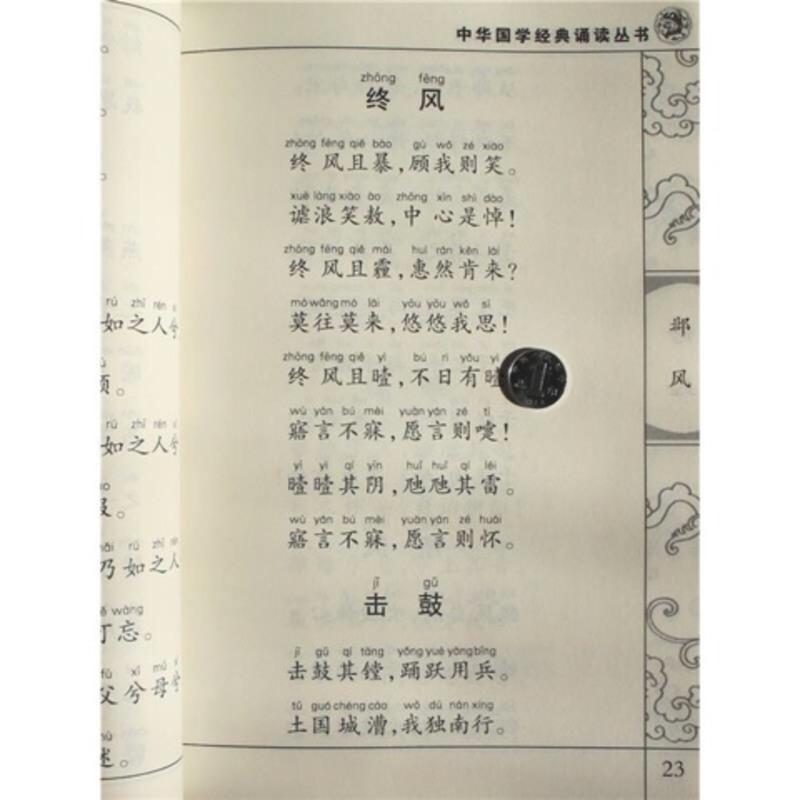 中华国学经典诵读丛书
zhōng fēng
终 风
zhōng fēng qiě bào gù wǒ zé xiào
终风且暴,顾我则笑。
xuè làng xiào ào zhōng xīn shì dào
谑浪笑敖,中心是悼!
zhōng fēng qiě mái huì rán kěn lái
终风且霾,惠然肯来?
mò wǎng mò lái yōu yōu wǒ sī
莫往莫来,悠悠我思!
zhōng fēng qiě yì bù rì yǒu yì
终风且曀,不日有曀
wù yán bú mèi yuàn yán zé tì
寤言不寐,愿言则嚏!
yì yì qí yīn huǐ huǐ qí léi
曀曀其阴,虺虺其雷。
wù yán bú mèi yuàn yán zé huái
寤言不寐,愿言则怀。
jī gǔ
击 鼓
jī gǔ qí tāng yǒng yuè yòng bīng
击鼓其镗,踊跃用兵。
tǔ guó chéng cáo wǒ dú nán xíng
土国城漕,我独南行。
邶风
23
rú zhī rén
如之人兮
rú zhī rén
如之人兮
rú zhī rén
乃如之人兮
wàng
忘。
fù xī mǔ
父兮母兮
述。